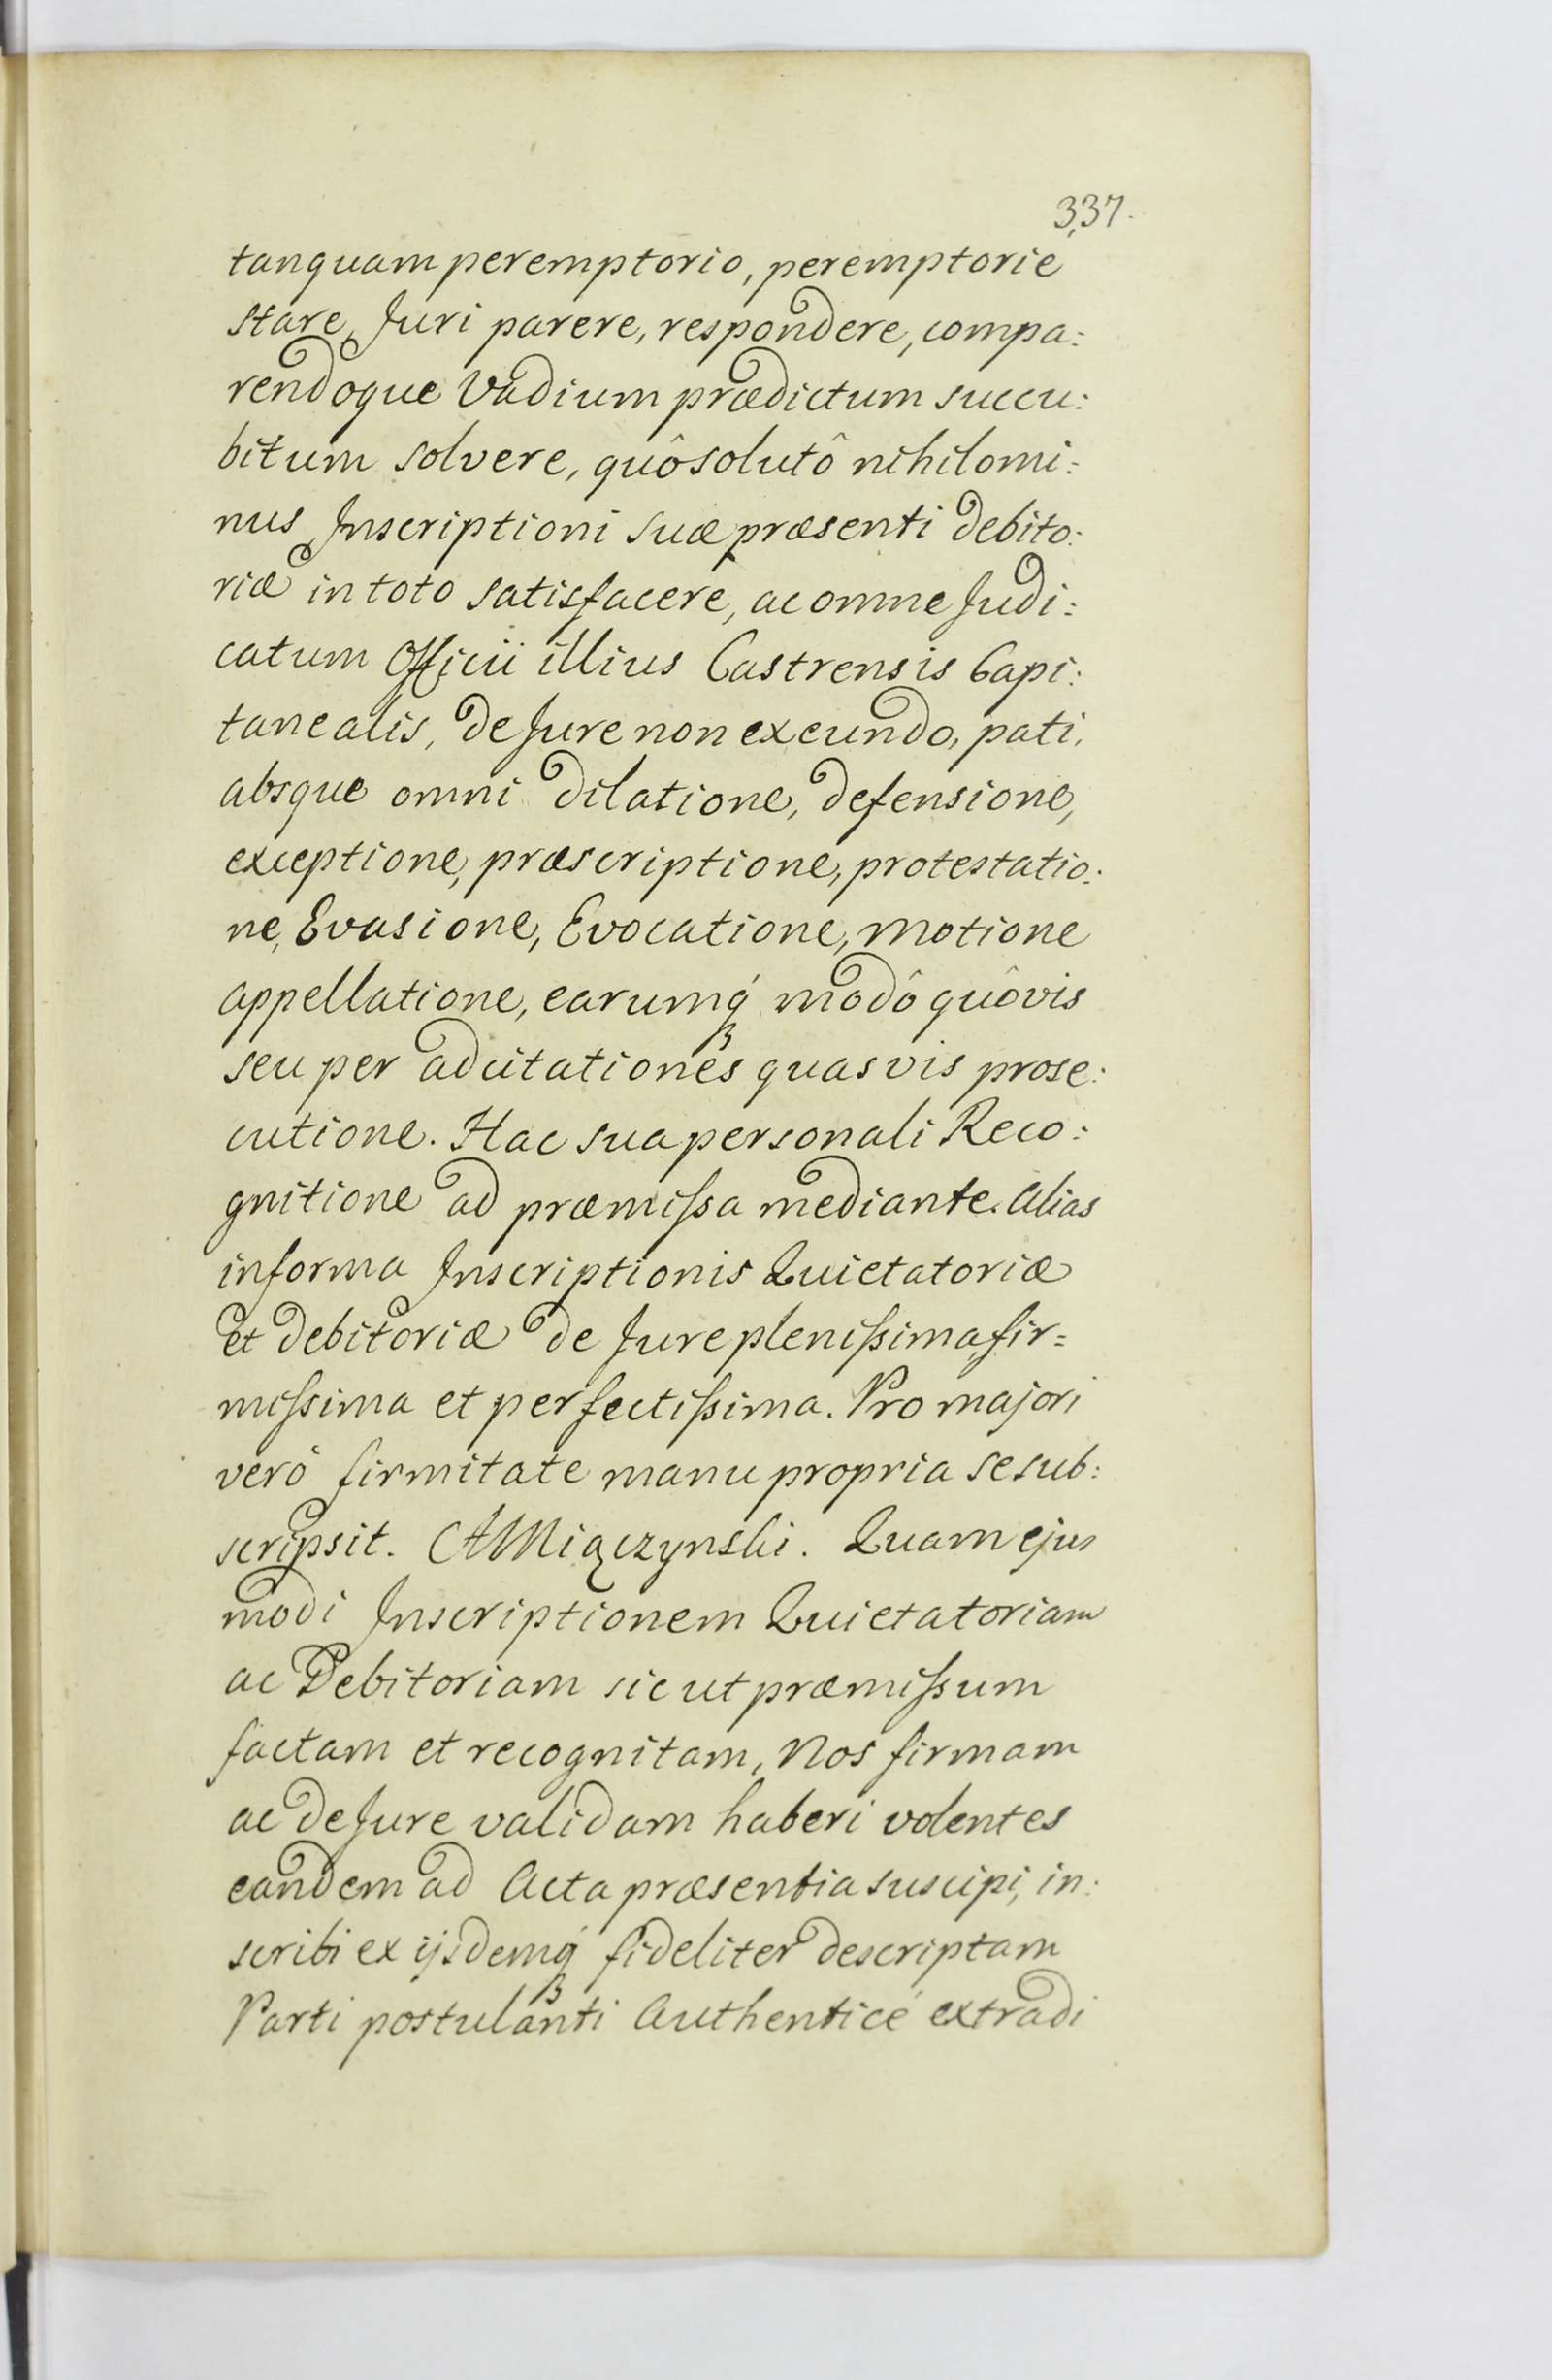 337.
tanquam peremptorio, peremptorie
stare, Juri parere, respondere, compa:
rendoque Vadium prædictum succu:
bitum solvere, quô solutô nihilomi:
nus Inscriptioni suæ præsenti debito:
riæ in toto satisfacere, ac omne Judi:
catum Officii illius Castrensis Capi:
tanealis, de Jure non exeundo, pati,
absque omni dilatione, defensione,
exceptione, præscriptione, protestatio:
ne, Evasione, Evocatione, Motione
appellatione, earumq́ꝫ modô quôvis
seu per adcitationes quasvis prose:
cutione. Hac sua personali Reco:
gnitione ad præmissa mediante. Alias
in forma Inscriptionis Quietatoriæ
et debitoriæ de Jure plenissima, fir=
missima et perfectissima. Pro majori
verò firmitate manu propria se sub:
scripsit. AMiączynski. Quam ejus
modi Inscriptionem Quietatoriam
ac Debitoriam sic ut præmissum
factam et recognitam, Nos firmam
ac de Jure validam haberi volentes
eandem ad Acta præsentia suscipi, in:
scribi ex ijsdemq́ꝫ fideliter descriptam
Parti postulanti Authenticé extradi